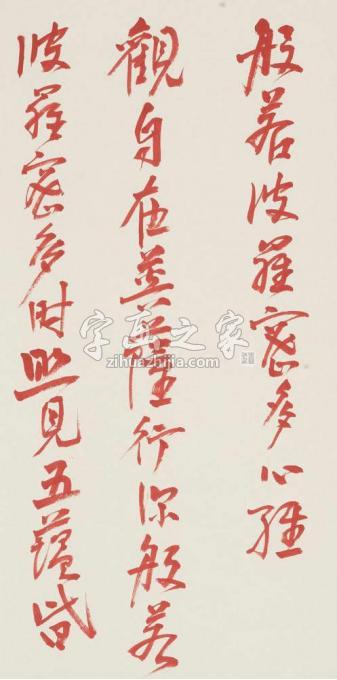 般若波羅密多心經
觀自在菩薩行深般若
波羅密多時照見五蘊皆
字画之家
zihuazhijia.com